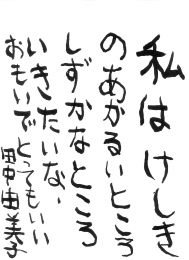 私はけしき
のあかるいところ
しずかなところ
いきたいな、
おもいでとってもいい
田中由美子